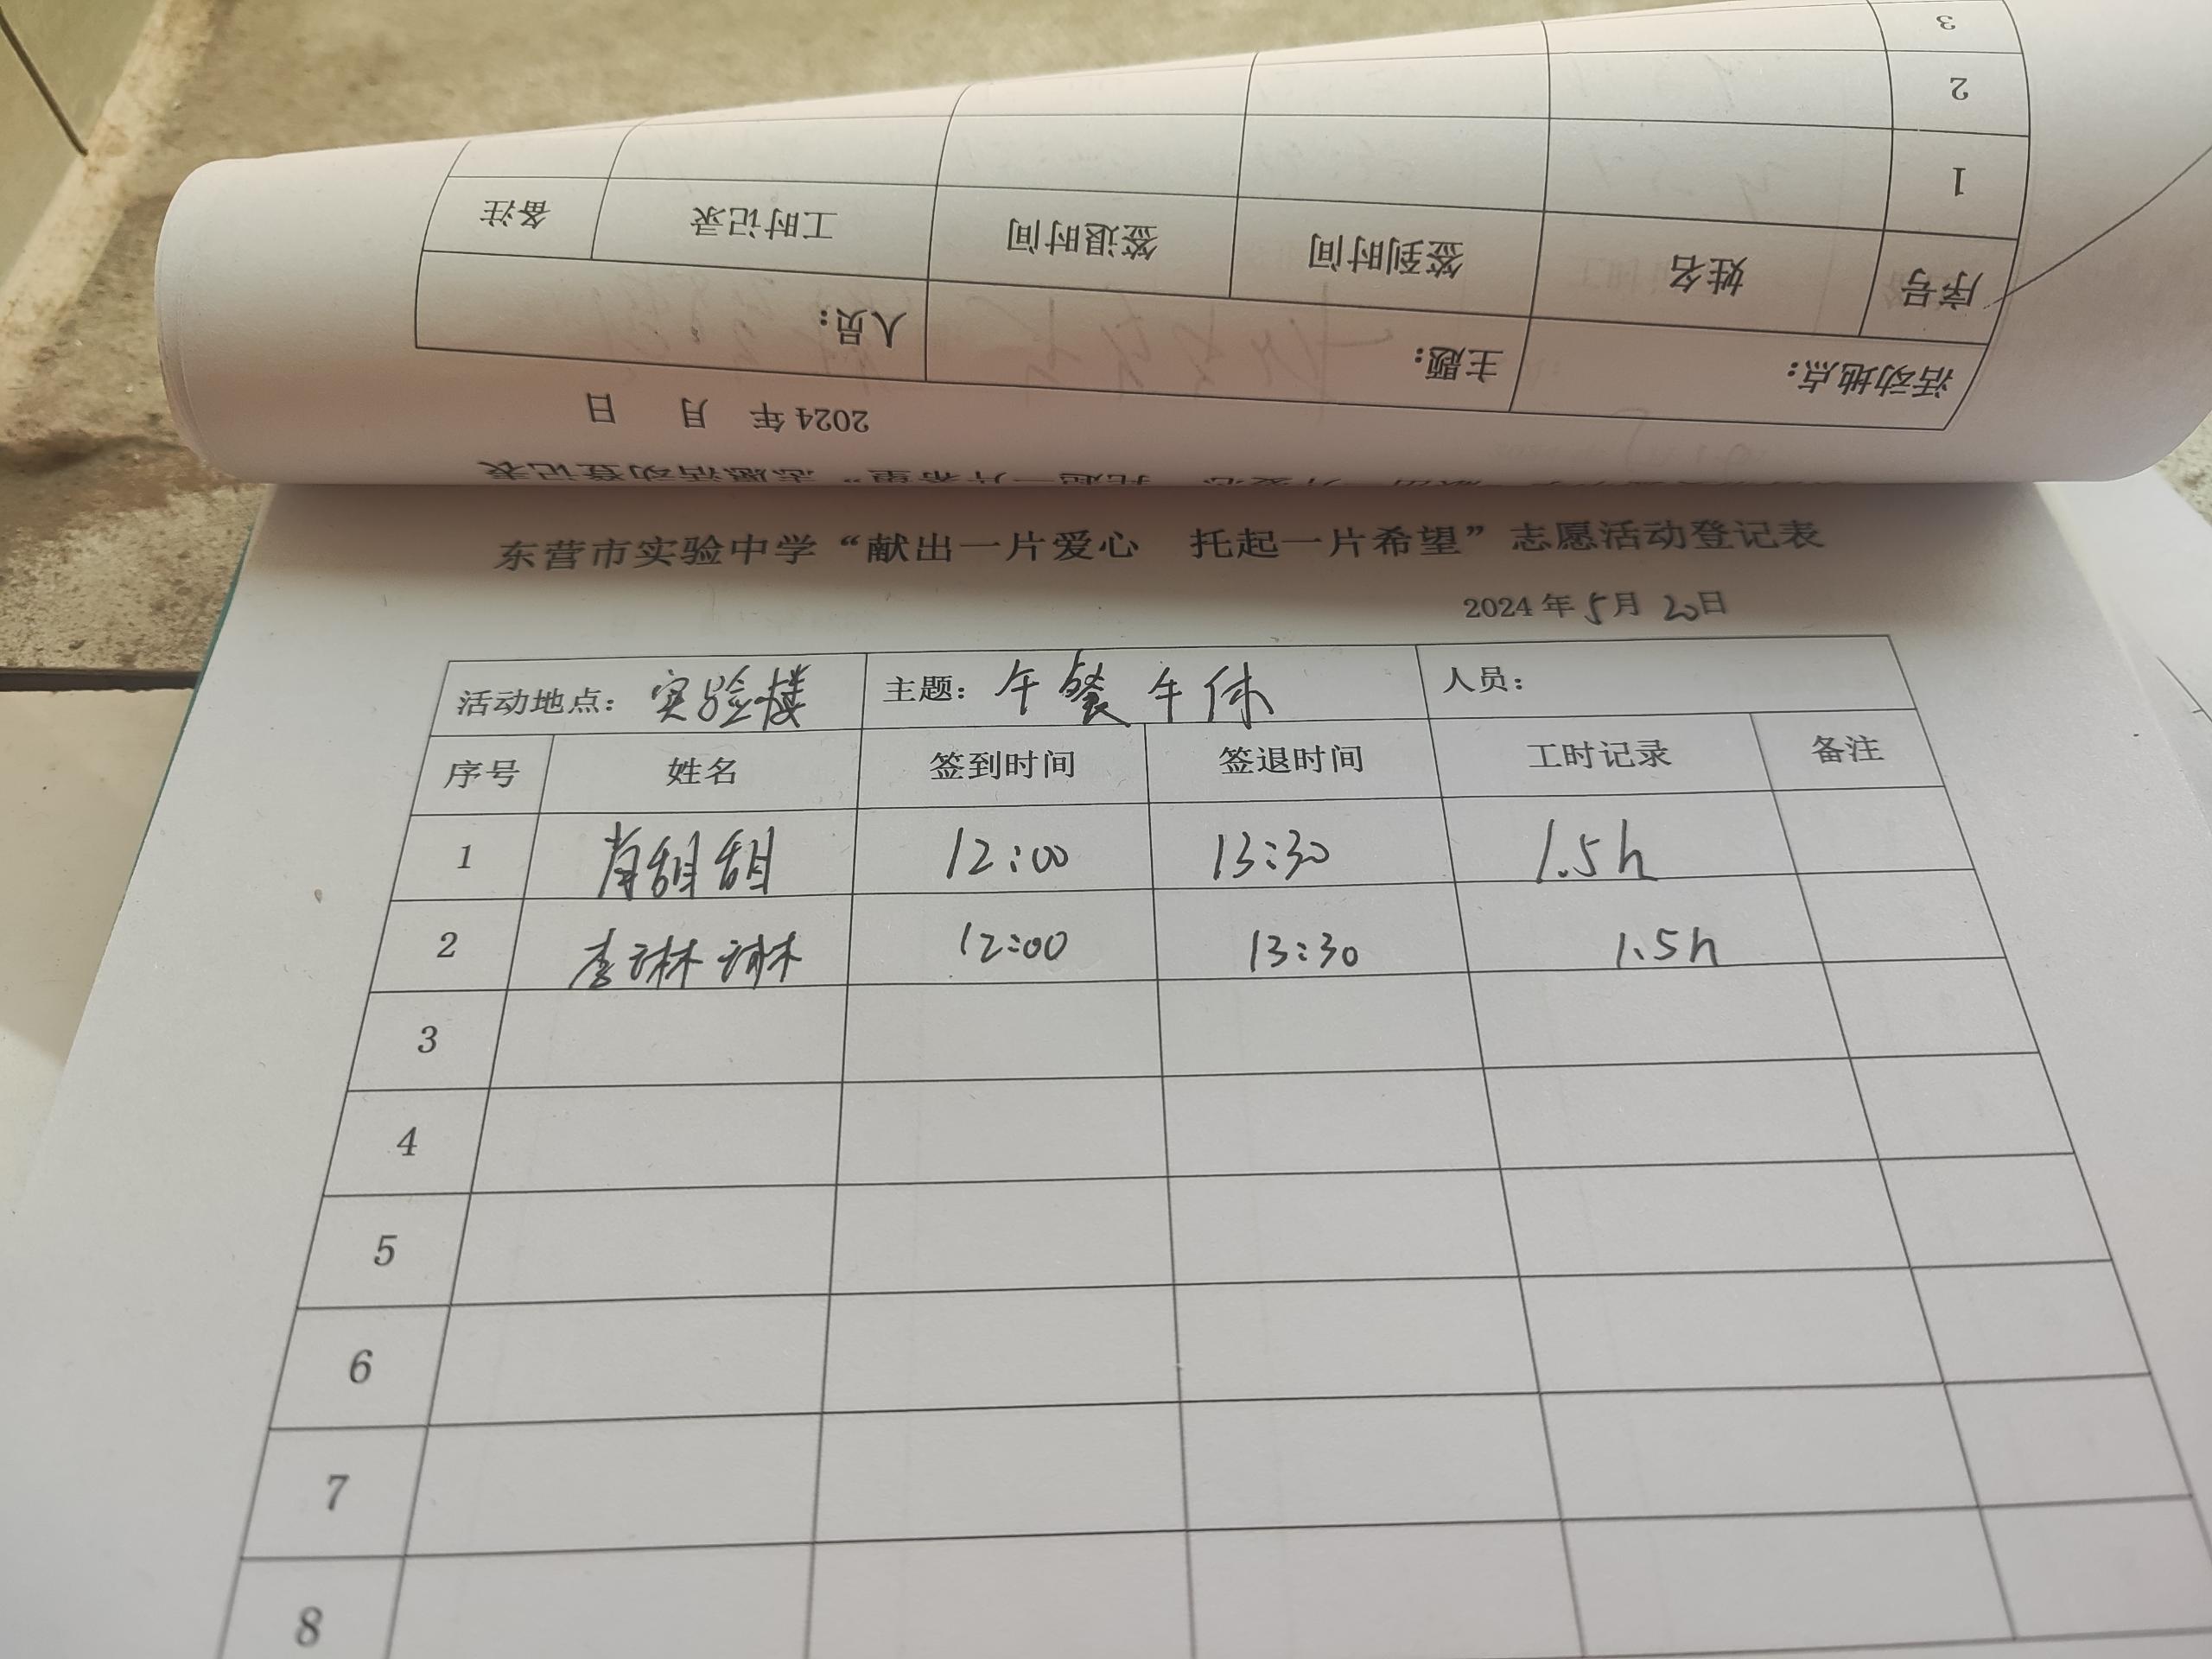 3
2
1
序号 姓名 签到时间 签退时间 工时记录 备注
活动地点: 主题: 人员:
2024 年 月 日
东营市实验中学“献出一片爱心 托起一片希望”志愿活动登记表
2024 年 5 月 20 日
活动地点: 实验楼 主题: 午餐午休 人员:
序号 姓名 签到时间 签退时间 工时记录 备注
1 肖甜甜 12:00 13:30 1.5h
2 李琳琳 12:00 13:30 1.5h
3
4
5
6
7
8